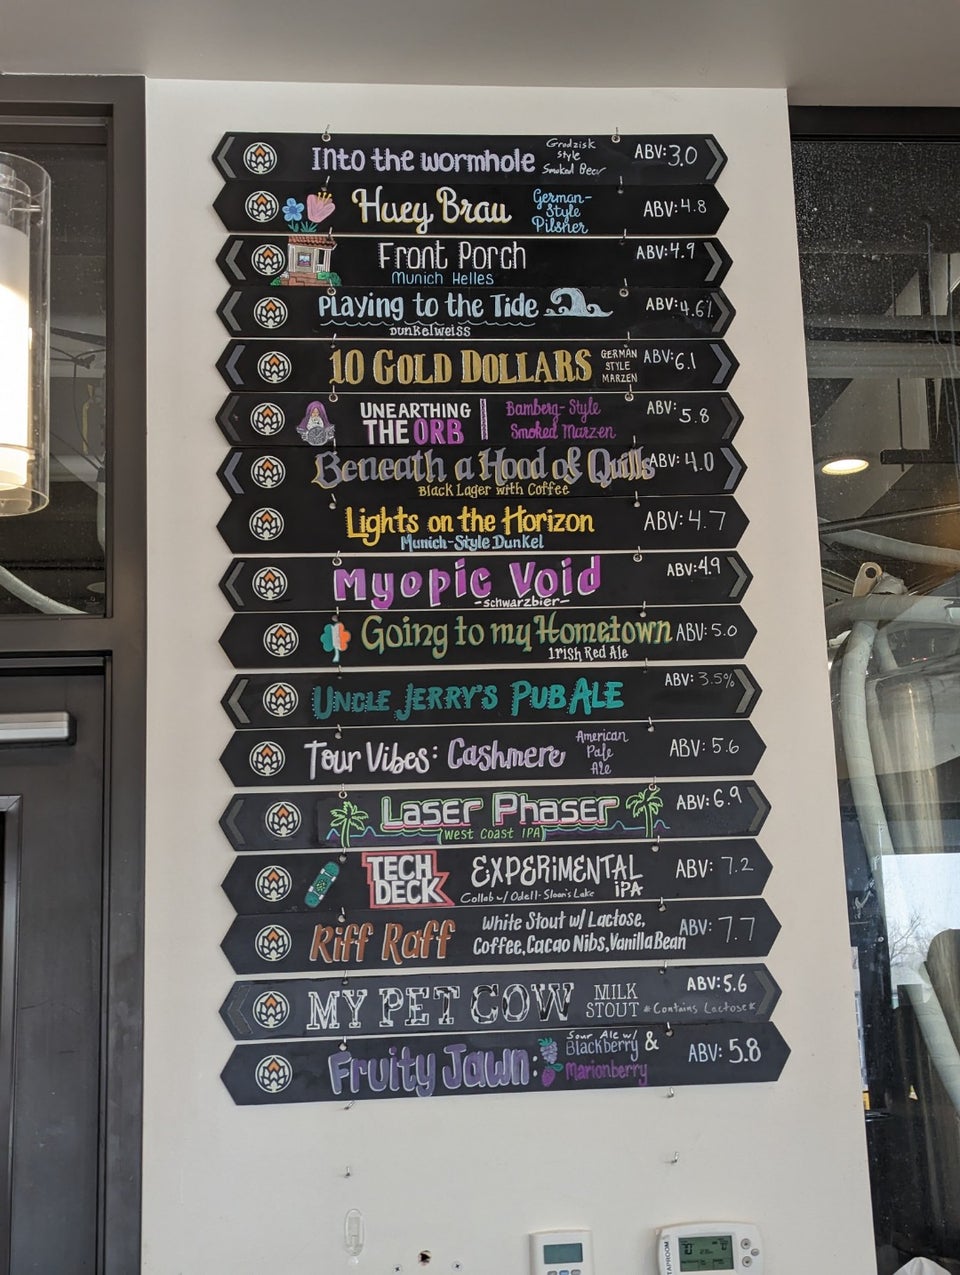 Into the wormhole Grodzisk Style Smoked Beer ABV: 3.0
Huey Brau German-Style Pilsner ABV: 4.8
Front Porch ABV: 4.9
Munich Helles
Playing to the Tide ABV: 4.6%
Dunkelweiss
10 Gold Dollars German Style Marzen ABV: 6.1
Unearthing the Orb Bamberg-Style Smoked Marzen ABV: 5.8
Beneath a Hood of Quills ABV: 4.0
Black Lager with Coffee
Lights on the Horizon ABV: 4.7
Munich-Style Dunkel
Myopic Void ABV: 4.9
-Schwarzbier-
Going to my Hometown ABV: 5.0
Irish Red Ale
Uncle Jerry's Pub Ale ABV: 3.5%
Tour Vibes: Cashmere American Pale Ale ABV: 5.6
Laser Phaser ABV: 6.9
(West Coast IPA)
Tech Deck Experimental IPA ABV: 7.2
Collab w/ Odell-Sloan's Lake
Riff Raff White Stout w/ Lactose, Coffee, Cacao Nibs, Vanilla Bean ABV: 7.7
My Pet Cow Milk Stout ABV: 5.6
*Contains Lactose*
Fruity Jawn: Sour Ale w/ Blackberry & Marionberry ABV: 5.8
TAPROOM